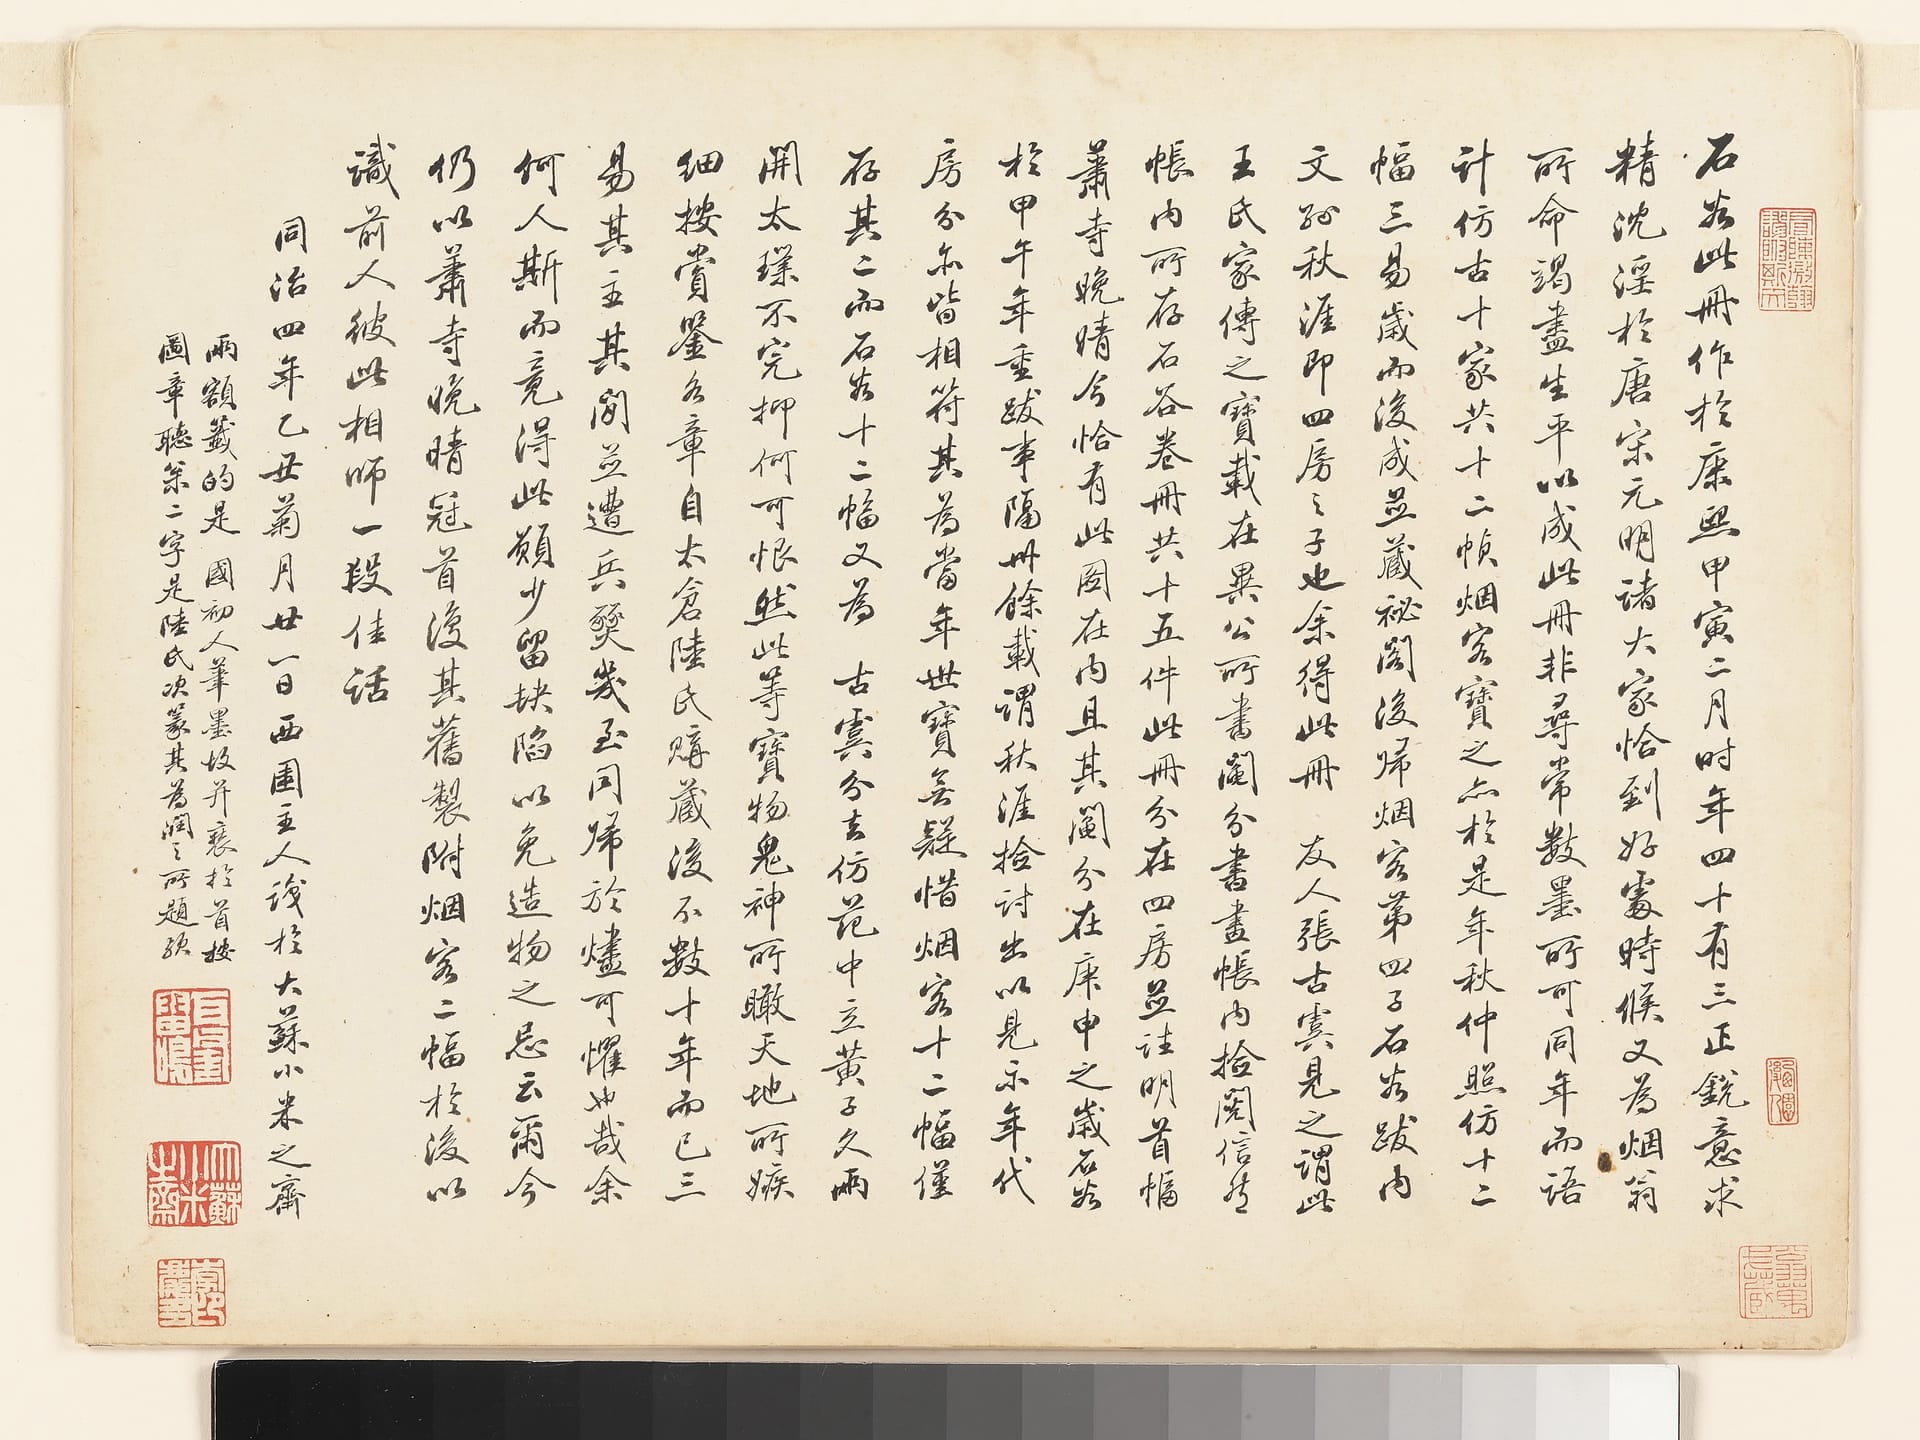 石谷此冊作於康熙甲寅二月时年四十有三正銳意求
精沈淫於唐宋元明諸大家恰到好處時候又為烟翁
所命竭盡生平以成此冊非尋常數墨所可同年而語
計仿古十家共十二幀烟客寶之亦於是年秋仲照仿十二
幅三易歲而後成並藏祕閣後歸烟客第四子石谷跋内
文孙秋涯即四房之子也余得此冊 友人張古虞見之謂此
王氏家傳之寶載在異公所書鬮分書畫帳内撿閱信然
帳内所存石谷卷冊共十五件此冊分在四房並註明首幅
蕭寺晚晴今恰有此图在内且其鬮分在庚申之歲石谷
於甲午年重跋事隔卅餘載謂秋涯撿討出以見示年代
房分亦皆相符其為當年世寶無疑惜烟客十二幅僅
存其二而石谷十二幅又為 古虞分去仿范中立黃子久兩
開太璞不完抑何可恨然此等寶物鬼神所瞰天地所嫉
细按賞鑒各章自太倉陸氏購藏後不數十年而已三
易其主其間並遭兵燹幾至同歸於燼可懼也哉余
何人斯而竟得此願少留缺陷以免造物之忌云爾今
仍以蕭寺晚晴冠首復其舊製附烟客二幅於後以
識前人彼此相师一段佳話
同治四年乙丑菊月廿一日西圃主人識於大蘇小米之齋
兩額籤的是 國初人筆墨故并裝於首按
圖章聽筞二字是陸氏次篆其為潤之所題歟
大蘇小米之齋